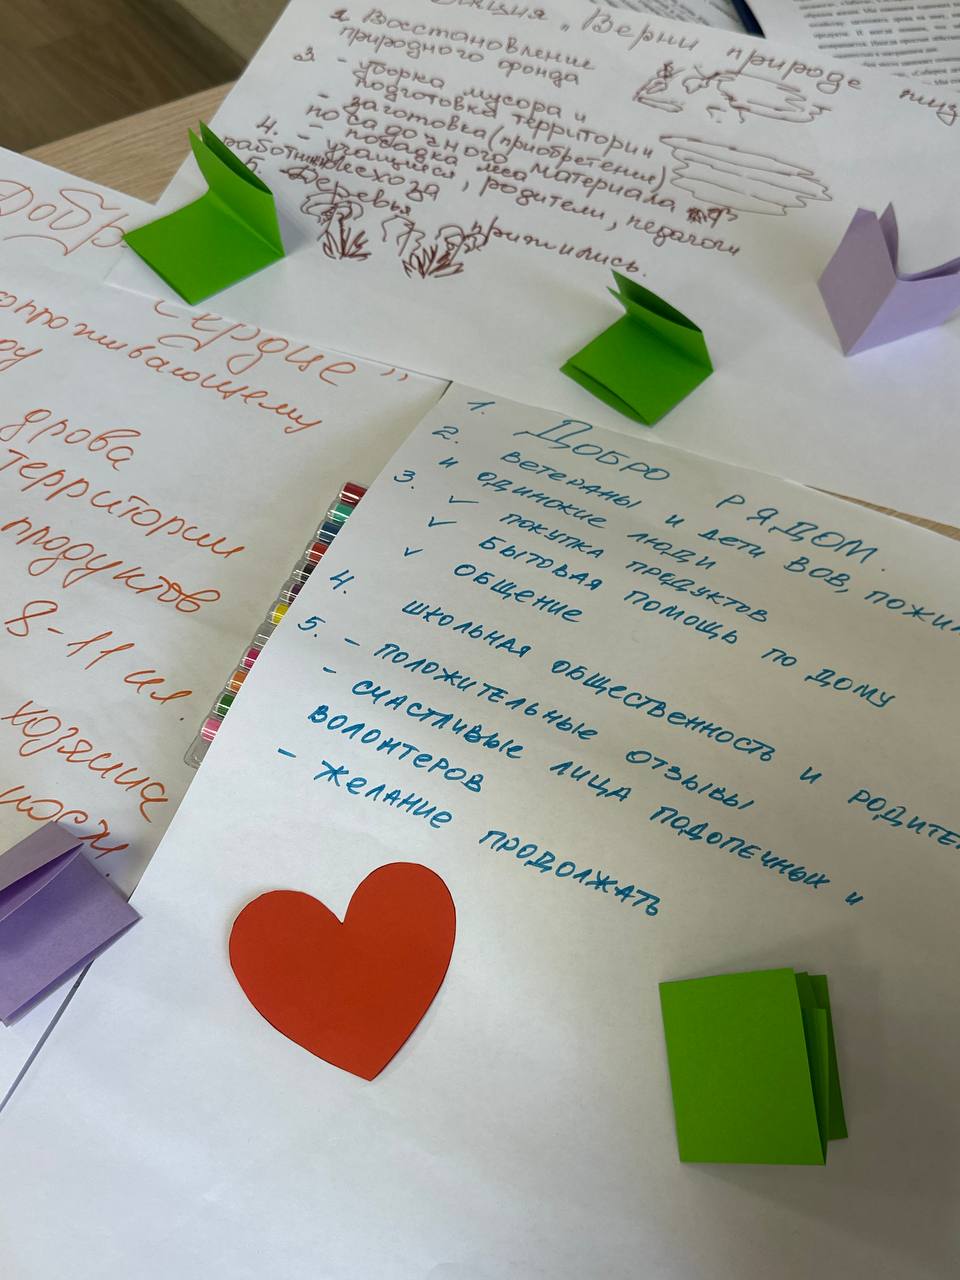 Акция „Верни природе
2. Восстановление
природного фонда
3. - уборка мусора и
подготовка территории
- заготовка (приобретение)
посадочного материала
- посадка леса
4. - учащиеся, родители, педагоги
работники лесхоза
5. Деревья прижились.
Добр
сердце"
копроживающему
дрова
территории
продуктов
8-11 кл.
хозяина
1. ДОБРО РЯДОМ.
2. ВЕТЕРАНЫ И ДЕТИ ВОВ, ПОЖИ
И ОДИНОКИЕ ЛЮДИ
3. ✓ ПОКУПКА ПРОДУКТОВ
✓ БЫТОВАЯ ПОМОЩЬ ПО ДОМУ
✓ ОБЩЕНИЕ
4. ШКОЛЬНАЯ ОБЩЕСТВЕННОСТЬ И РОДИТЕЛ
5. - ПОЛОЖИТЕЛЬНЫЕ ОТЗЫВЫ
- СЧАСТЛИВЫЕ ЛИЦА ПОДОПЕЧНЫХ И
ВОЛОНТЕРОВ
- ЖЕЛАНИЕ ПРОДОЛЖАТЬ